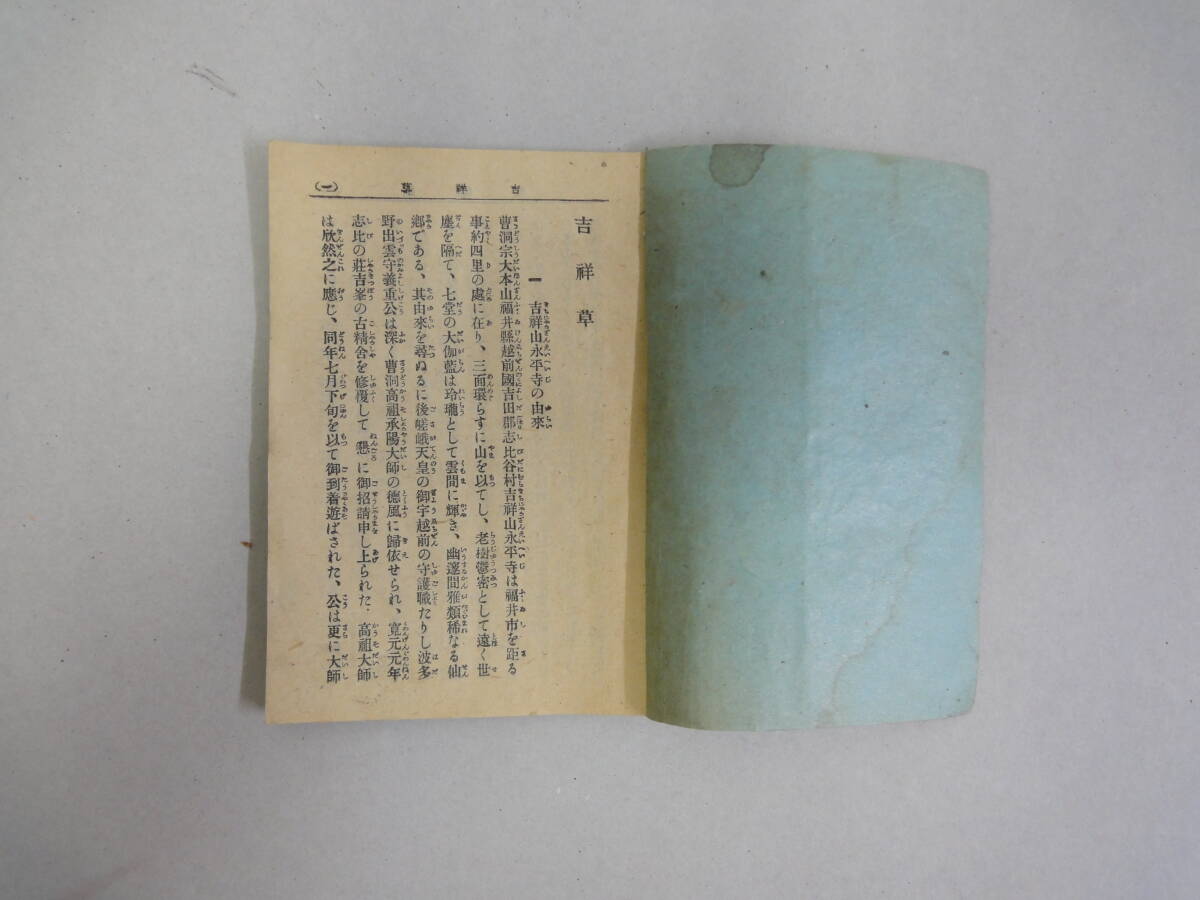 吉祥草 (一)
吉祥草
一 吉祥山永平寺の由來
曹洞宗大本山福井縣越前國吉田郡志比谷村吉祥山永平寺は福井市を距る
事約四里の處に在り、三面環らすに山を以てし、老樹鬱密として遠く世
塵を隔て、七堂の大伽藍は玲瓏として雲間に輝き、幽邃閒雅類稀なる仙
鄕である、其由來を尋ぬるに後嵯峨天皇の御宇越前の守護職たりし波多
野出雲守義重公は深く曹洞高祖承陽大師の德風に歸依せられ、寛元元年
志比の莊吉峯の古精舍を修覆して懇に御招請申し上られた、高祖大師
は欣然之に應じ、同年七月下旬を以て御到着遊ばされた、公は更に大師